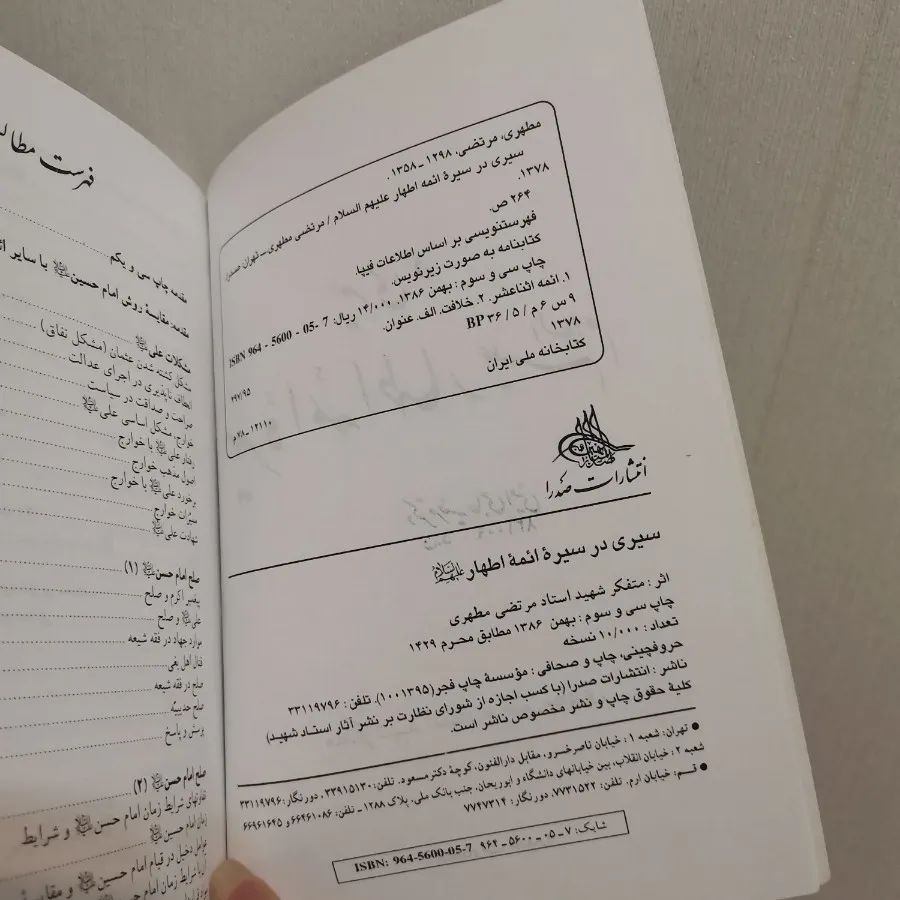 مطهری، مرتضی، ۱۲۹۸ ـ ۱۳۵۸.
سیری در سیرهٔ ائمه اطهار علیهم السلام / مرتضی مطهری ـ تهران: صدرا،
۱۳۷۸.
۲۶۴ ص.
فهرستنویسی بر اساس اطلاعات فیپا.
کتابنامه به صورت زیرنویس.
چاپ سی و سوم: بهمن ۱۳۸۶. ۱۴/۰۰۰ ریال: ISBN 964 - 5600 - 05 - 7
۱. ائمه اثناعشر. ۲. خلافت. الف. عنوان.
۹ س ۶ م / ۵ / ۳۶ BP
۲۹۷/۹۵
۱۳۷۸
کتابخانه ملی ایران
۱۲۱۱۰ ـ ۷۸م
انتشارات صدرا
سیری در سیرهٔ ائمهٔ اطهار علیهم‌السلام
اثر: متفکر شهید استاد مرتضی مطهری
چاپ سی و سوم: بهمن ۱۳۸۶ مطابق محرم ۱۴۲۹
تعداد: ۱۰/۰۰۰ نسخه
حروفچینی، چاپ و صحافی: مؤسسهٔ چاپ فجر (۱۰۰۱۳۹۵). تلفن: ۳۳۱۱۹۷۹۶
ناشر: انتشارات صدرا (با کسب اجازه از شورای نظارت بر نشر آثار استاد شهید)
کلیهٔ حقوق چاپ و نشر مخصوص ناشر است.
● تهران: شعبه ۱: خیابان ناصرخسرو، مقابل دارالفنون، کوچهٔ دکتر مسعود. تلفن: ۳۳۹۱۵۱۳۰، دورنگار: ۳۳۱۱۹۷۹۶
شعبه ۲: خیابان انقلاب، بین خیابانهای دانشگاه و ابوریحان، جنب بانک ملی، پلاک ۱۲۸۸ ـ تلفن: ۶۶۴۶۱۰۸۶ و ۶۶۹۶۱۶۴۵
● قم: خیابان ارم. تلفن: ۷۷۳۱۵۲۲، دورنگار: ۷۷۴۷۳۱۴
شابک: ۷ ـ ۰۵ ـ ۵۶۰۰ ـ ۹۶۴
ISBN: 964-5600-05-7
فهرست
مقدمه چاپ سی و یکم
مقدمه: مقایسهٔ روش امام حسین با سایر
مشکلات علی
مشکل کشته شدن عثمان (مشکل نفاق)
انعطاف ناپذیری در اجرای عدالت
صراحت و صداقت در سیاست
خوارج، مشکل اساسی علی
رفتار علی با خوارج
اصول مذهب خوارج
برخورد علی با خوارج
ممیزات خوارج
شهادت علی
صلح امام حسن (۱)
پیغمبر اکرم و صلح
علی و صلح
موارد جهاد در فقه شیعه
قتال اهل بغی
صلح در فقه شیعه
صلح حدیبیه
پرسش و پاسخ
صلح امام حسن (۲)
تفاوتهای شرایط زمان امام حسن و شرایط
زمان امام حسین
عوامل دخیل در قیام امام حسین و